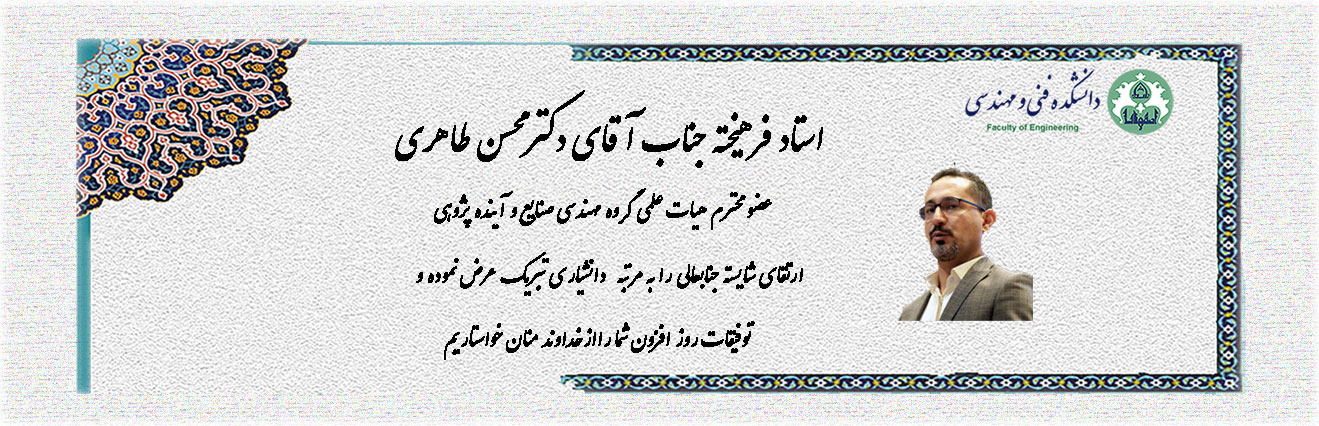 دانشکده فنی و مهندسی
Faculty of Engineering
استاد فرهیخته جناب آقای دکتر محسن طاهری
عضو محترم هیات علمی گروه مهندسی صنایع و آینده پژوهی
ارتقای شایسته جنابعالی را به مرتبه دانشیاری تبریک عرض نموده و
توفیقات روز افزون شما را از خداوند منان خواستاریم